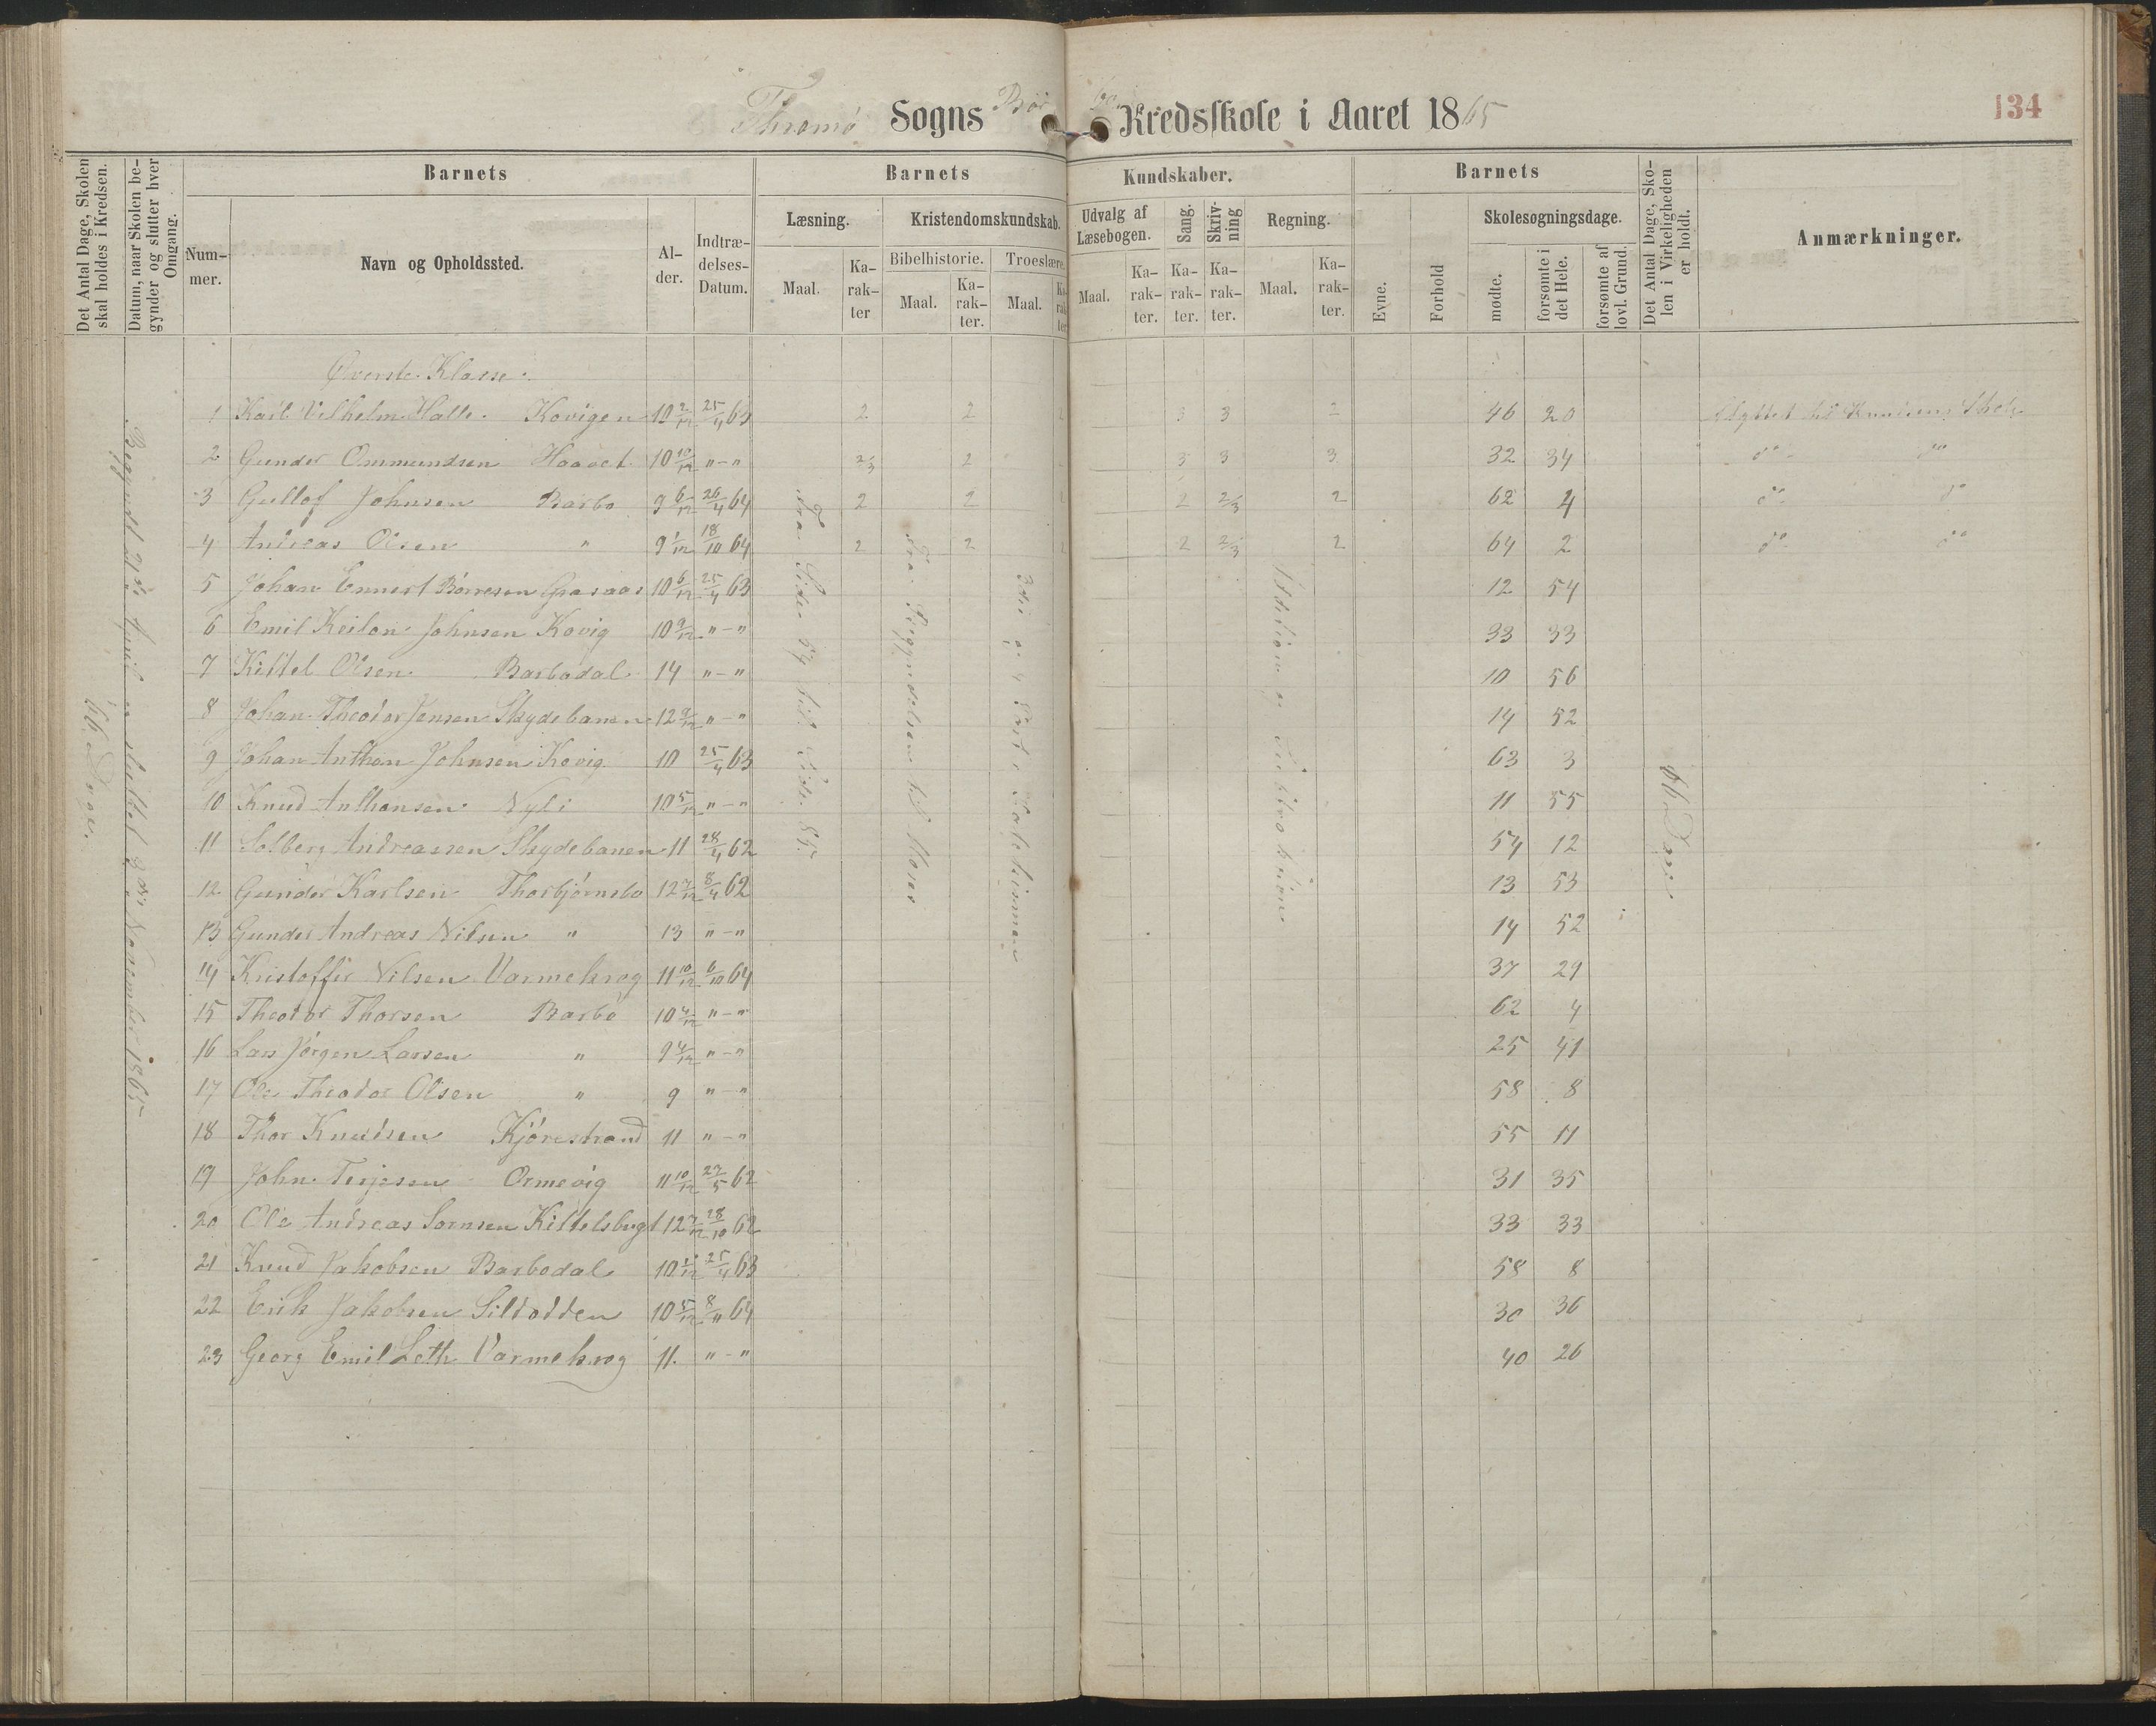 Thromø Sogns Kredsskole i Aaret 1865
134
Det Antal Dage, Skolen skal holdes i Kredsen.
Datum, naar Skolen begynder og slutter hver Omgang.
Barnets
Barnets Kundskaber.
Barnets
Det Antal Dage, Skolen i Virkeligheden er holdt.
Anmærkninger.
Nummer.
Navn og Opholdssted.
Alder.
Indtrædelses-Datum.
Læsning.
Kristendomskundskab.
Udvalg af Læsebogen.
Sang.
Skrivning
Regning.
Evne.
Forhold
Skolesøgningsdage.
Bibelhistorie.
Troeslære.
Maal.
Karakter
Maal.
Karakter.
Maal.
Karakter
Maal.
Karakter.
Karakter.
Karakter.
Maal.
Karakter.
mødte.
forsømte i det Hele.
forsømte af lovl. Grund.
66 Dage.
Begyndt 21de April og sluttet 3die November 1865
Øverste Klasse.
1 Karl Vilhelm Halle. Kovigen 10 2/12 25/4 63 2 2 2 3 3 2 46 20 Flyttet til Knudsens Skole
2 Gunder Ommundsen Haavet 10 10/12 "-" 2/3 2 3 3 3 32 34 do do
3 Gullof Johnsen Barbo 9 6/12 26/4 64 2 2 2 2/3 2 62 4 do do
4 Andreas Olsen " 9 1/12 18/10 64 2 2 2 2 2/3 2 64 2 do do
5 Johan Ennert Børresen Graaaas 10 6/12 25/4 63 12 54
6 Emil Keilon Johnsen Kovig 10 9/12 "-" 33 33
7 Kittel Olsen Barbodal 14 "-" 10 56
8 Johan Theodor Jensen Skydebanen 12 9/12 "-" 14 52
9 Johan Anthon Johnsen Kovig 10 25/4 63 63 3
10 Knud Anthonsen Nyli 10 5/12 "-" 11 55
11 Solberg Andreassen Skydebanen 11 28/4 62 54 12
12 Gunder Karlsen Thorbjørnsbo 12 7/12 8/4 62 13 53
13 Gunder Andreas Nilsen " 13 "-" 14 52
14 Kristoffer Nilsen Varmekrog 11 10/12 6/10 64 37 29
15 Theodor Thorsen Barbo 10 4/12 "-" 62 4
16 Lars Jørgen Larsen " 9 4/12 "-" 25 41
17 Ole Theodor Olsen " 9 "-" 58 8
18 Thor Knudsen Kjørestrand 11 "-" 55 11
19 John Terjesen Ormevig 11 10/12 27/5 62 31 35
20 Ole Andreas Sørnsen Kittelsbugt 12 7/12 28/10 62 33 33
21 Knud Jakobsen Barbodal 10 25/4 63 58 8
22 Erik Jakobsen Sildodden 10 5/12 8/11 64 30 36
23 Georg Emil Leth Varmekrog 11. "-" 40 26
Fra Side 54 til Side 85.
Fra Begyndelsen til Moses
3die og 4 Part i Katekismen
Addition og Subtraktion
66 Dage